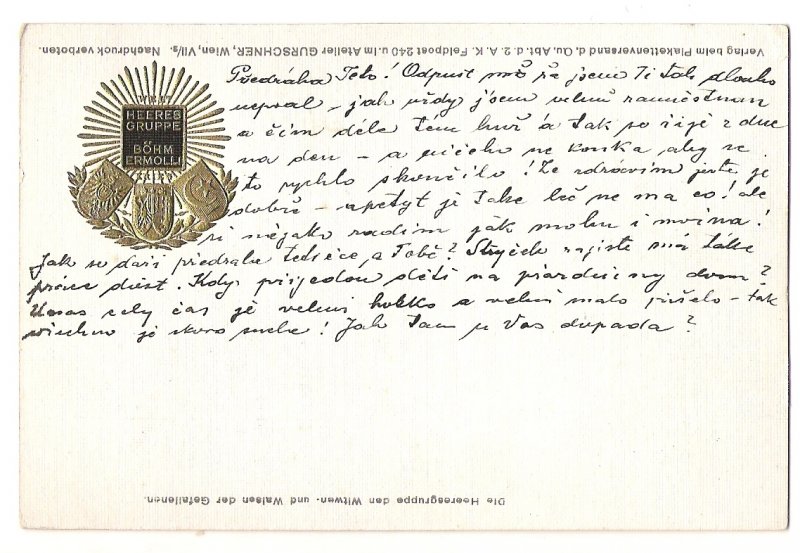 Verlag beim Plakettenversand d. Qu. Abt. d. 2. A. K. Feldpost 240 u. im Atelier GURSCHNER, Wien, VII/2. Nachdruck verboten.
HEERES
GRUPPE
BÖHM
ERMOLLI
Předrahá Teto! Odpusť mě že jsem Ti tak dlouho
nepsal – jak vždy jsem velmi zaměstnan
a čím déle tem huř a tak se žije z dne
na den – a ničeho ne kouka aby se
to rychlo skončilo! Ze zdravim jeste je
dobře – apetyt je take leč ne ma co! ale
si nějako radim jak mohu i možna!
Jak se daři předrahe Tetičce, a Tobě? Stryček zajiste má také
prace dost. Kdy přijedou děti na prazdniny domu?
U nas cely čas je velmi horko a velmi malo pršelo – tak
wšechno je skoro suche! Jak tam u Vas dopada?
Die Heeresgruppe den Witwen- und Waisen der Gefallenen.